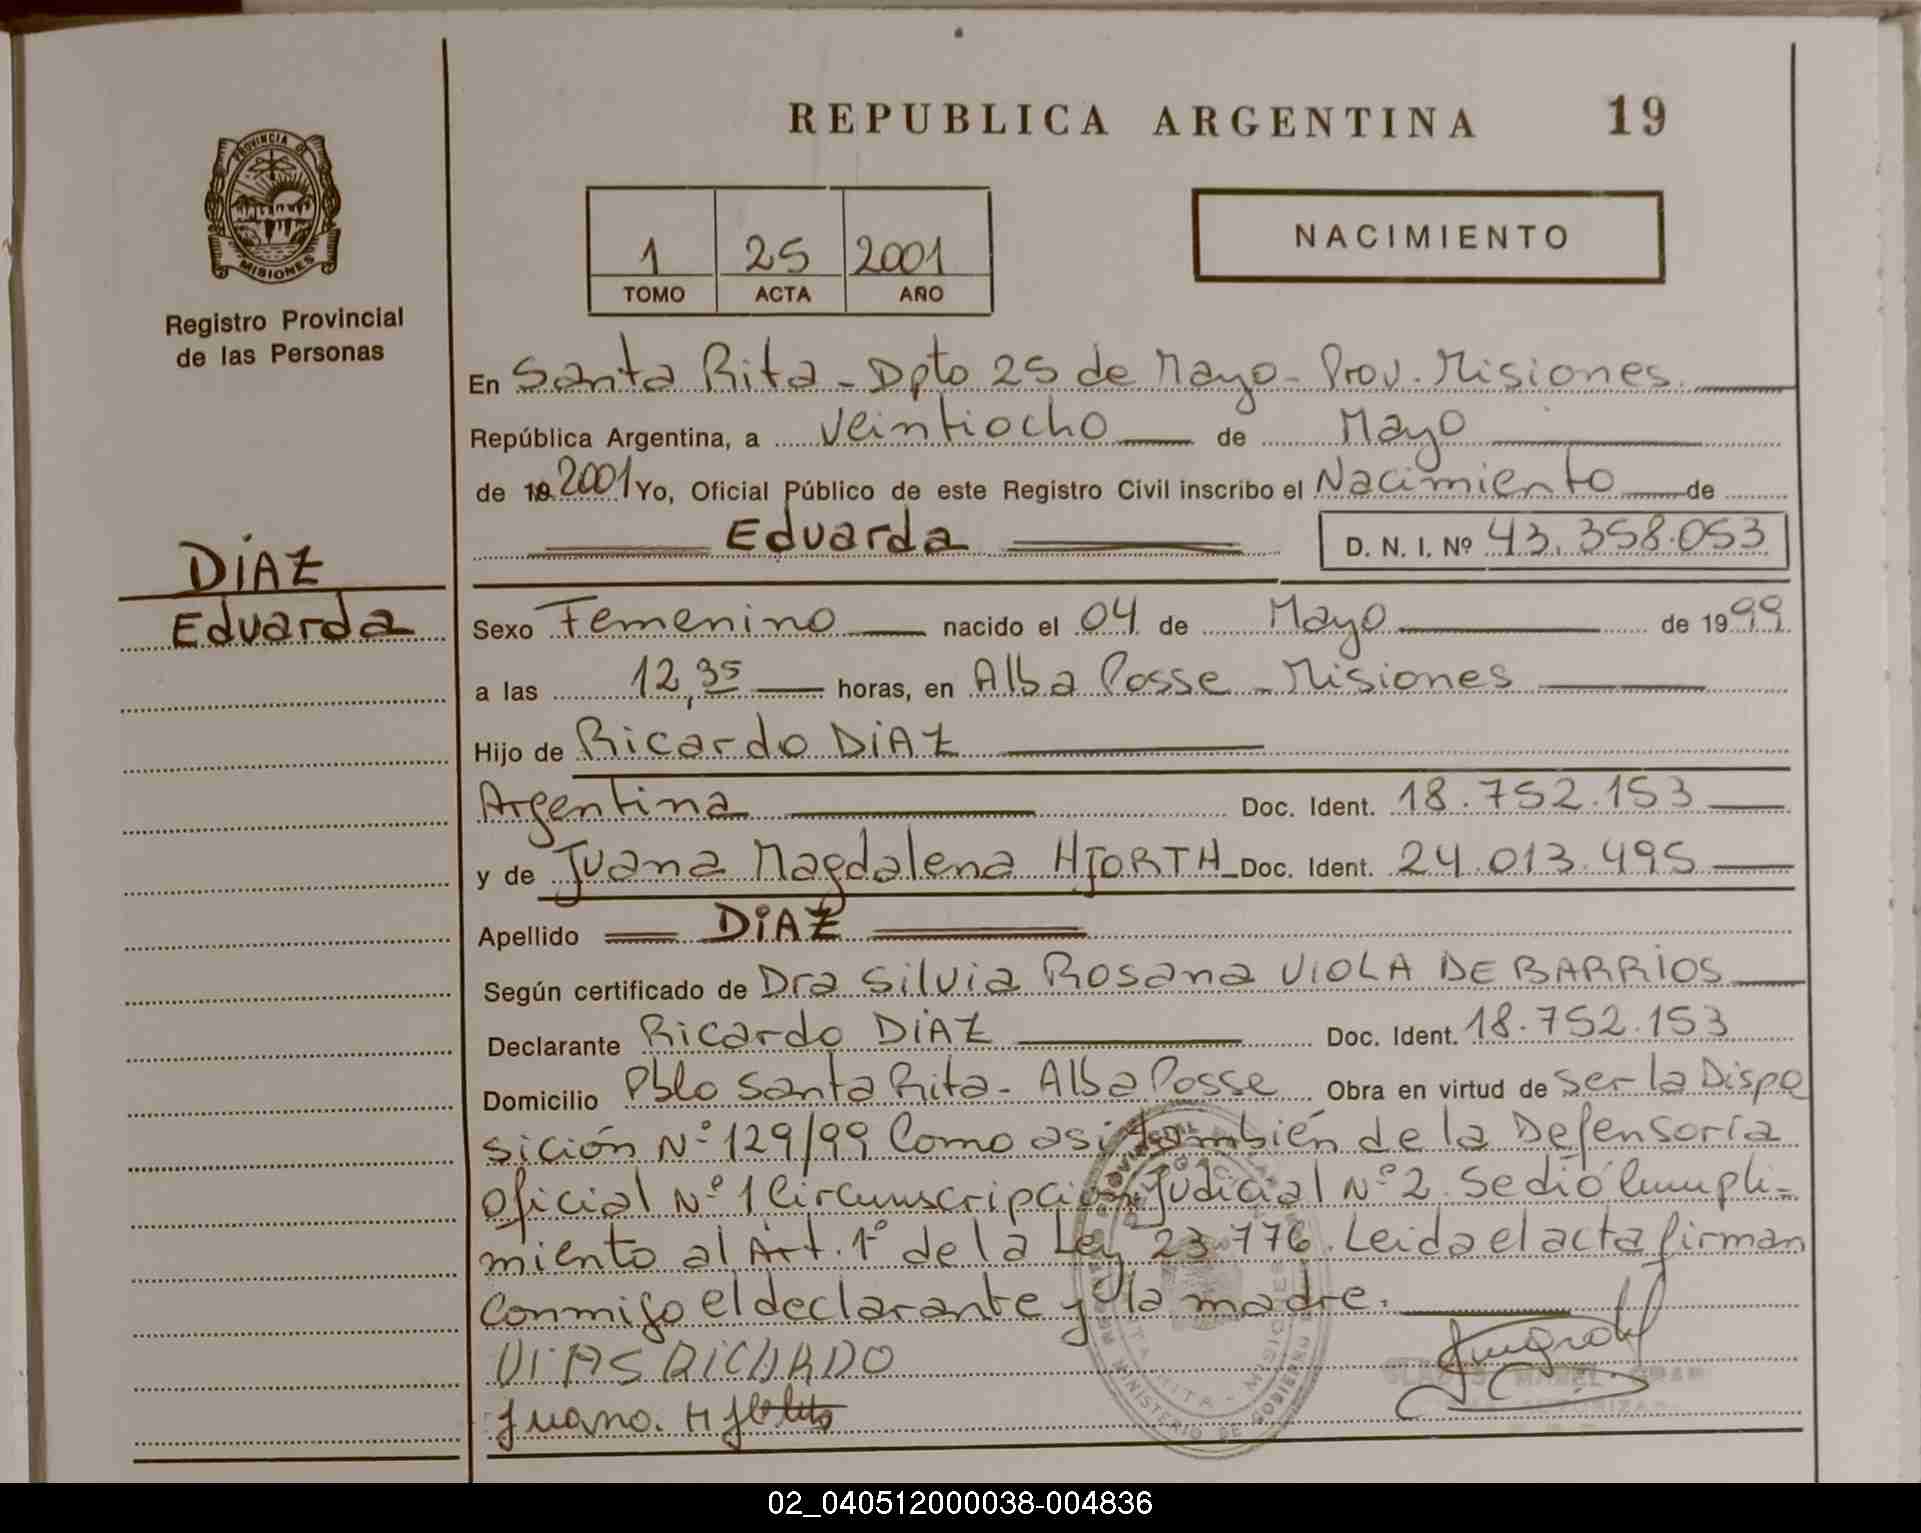 REPUBLICA ARGENTINA 19
PROVINCIA DE
MISIONES
Registro Provincial
de las Personas
1 25 2001
TOMO ACTA AÑO
NACIMIENTO
En Santa Rita - Dpto 25 de Mayo - Prov. Misiones
República Argentina, a veintiocho de Mayo
de 19 2001 Yo, Oficial Público de este Registro Civil inscribo el Nacimiento de
Eduarda D. N. I. Nº 43.358.053
DIAZ
Eduarda
Sexo Femenino nacido el 04 de Mayo de 1999
a las 12,35 horas, en Alba Posse - Misiones
Hijo de Ricardo DIAZ
Argentina Doc. Ident. 18.752.153
y de Juana Magdalena HJORTH Doc. Ident. 24.013.495
Apellido DIAZ
Según certificado de Dra Silvia Rosana VIOLA DE BARRIOS
Declarante Ricardo DIAZ Doc. Ident. 18.752.153
Domicilio Pblo Santa Rita - Alba Posse Obra en virtud de ser la Dispo
sición Nº 129/99 Como asi también de la Defensoría
oficial Nº 1 Circunscripción Judicial Nº 2. Se dió Cumpli-
miento al Art. 1º de la Ley 23.776. Leida el acta firman
conmigo el declarante y la madre.
DIAS RICARDO
Juana. H
MINISTERIO DE GOBIERNO
02_040512000038-004836